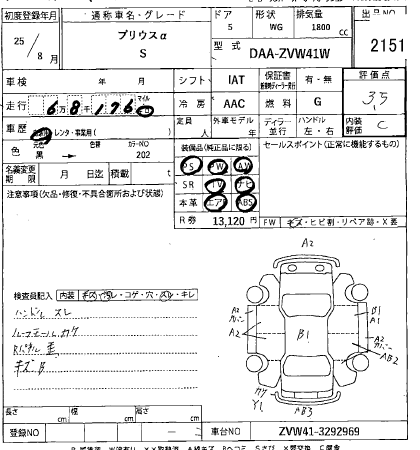 初度登録年月 通称車名・グレード ドア 形状 排気量 出品NO
25/8月 プリウスα 5 WG 1800 cc
S 型式 DAA-ZVW41W 2151
車検 年 月 シフト IAT 保証書 有・無 評価点
走行 6万8千126 マイル 冷房 AAC 燃料 G 3.5
車歴 レンタ・事業用 定員 人 外車モデル 年 ディーラー 並行 ハンドル 左・右 内装評価 C
色 元色 黒 → 色替 カラーNO 202 装備品(純正品に限る) セールスポイント(正常に機能するもの)
名義変更期限 月 日迄 積載 t PS PW AW
注意事項(欠品・修復・不具合箇所および状態) SR TV ナビ
本革 エアB ABS
R券 13,120 円 FW キズ・ヒビ割・リペア跡・X要
A2
検査員記入 内装 キズ・汚レ・コゲ・穴・スレ・キレ
ハンドル スレ
ルーフモール カケ
Rパネル 歪
キズ B
A2 カバー
A2
B1
B1
A1
A2 カバー
AB2
カケ
Y1
AB3
長さ cm 幅 cm 高さ cm
登録NO 車台NO ZVW41-3292969